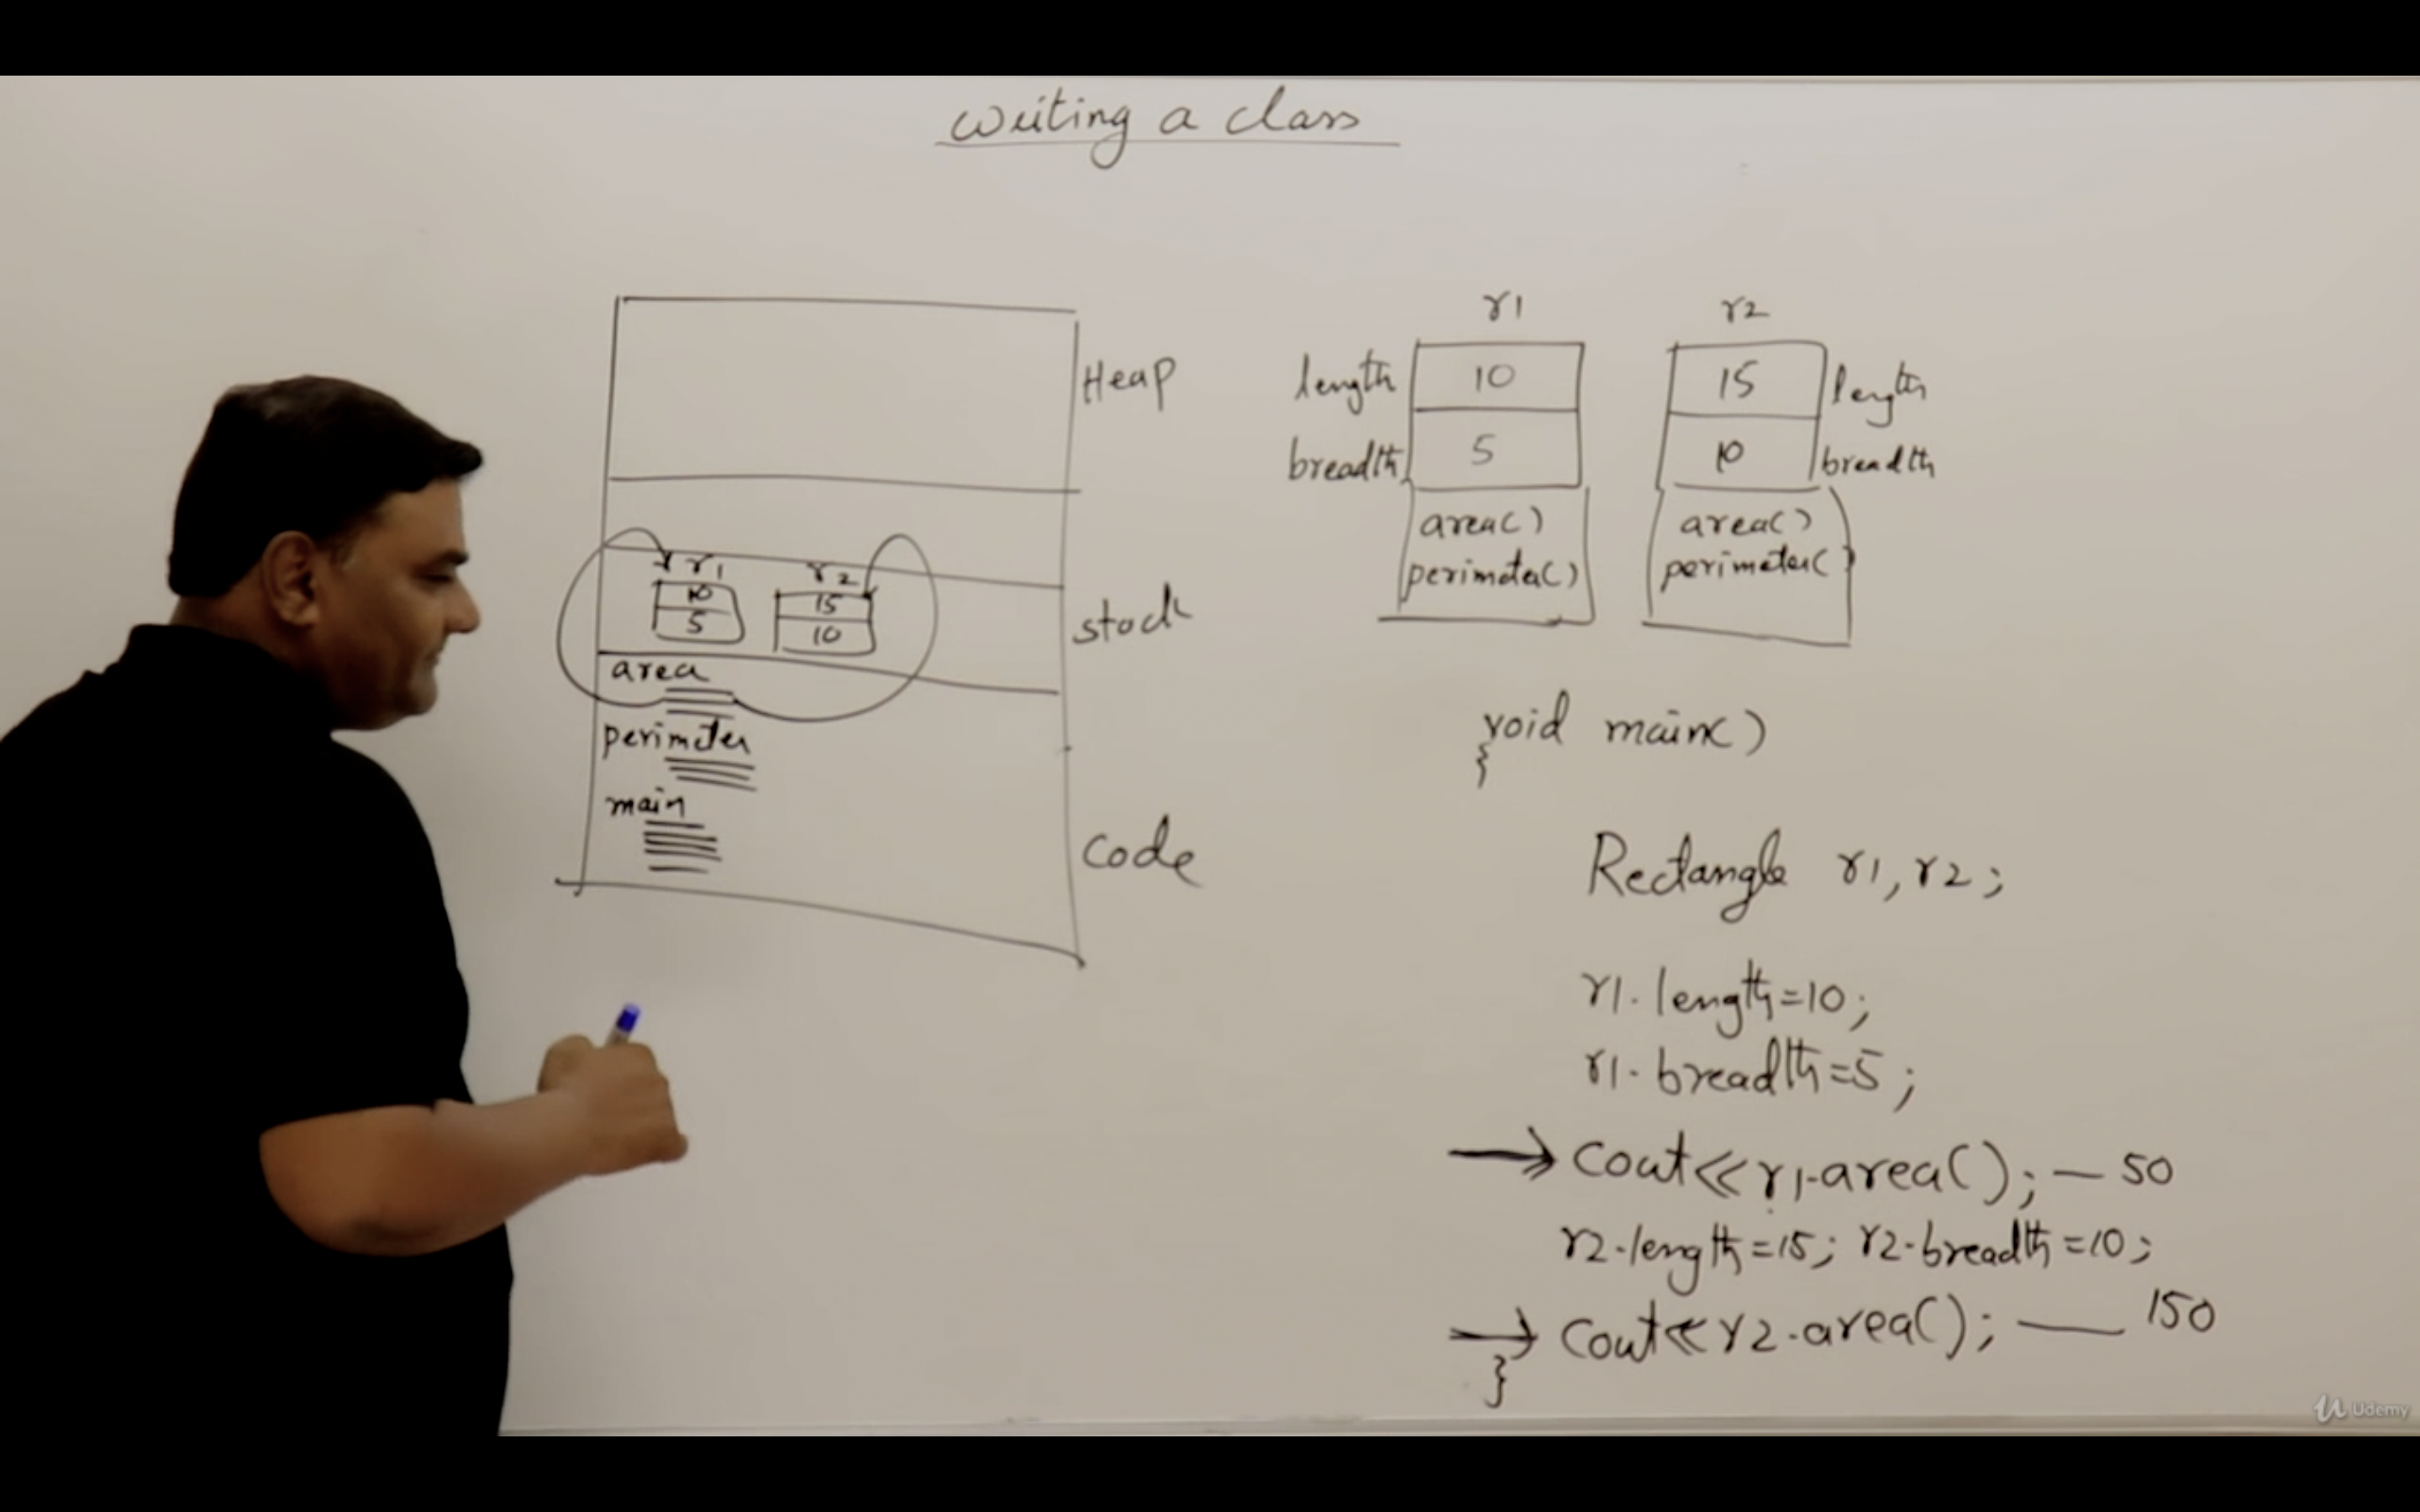 Writing a class
Heap
stack
code
r1 r2
10 15
5 10
area
perimeter
main
r1 r2
length 10 15 length
breadth 5 10 breadth
area() area()
perimeter() perimeter()
void main()
{
Rectangle r1, r2;
r1.length=10;
r1.breadth=5;
cout<<r1.area(); — 50
r2.length=15; r2.breadth=10;
cout<<r2.area(); — 150
}
Udemy